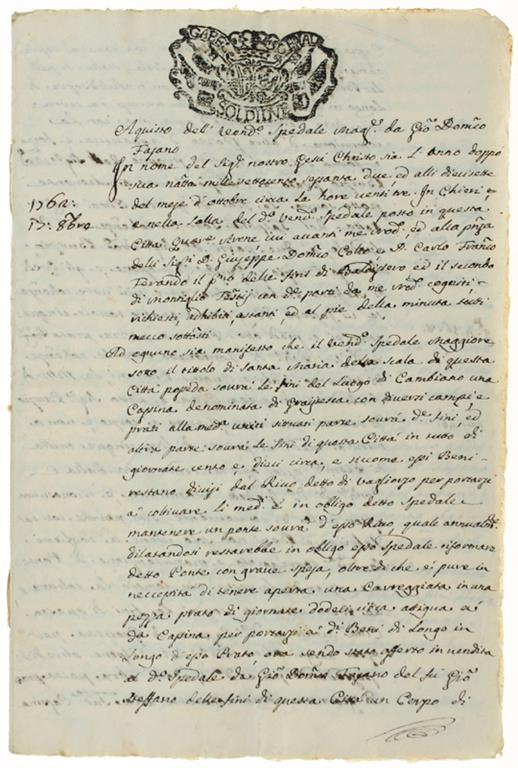 SOLDI DVE
Aquisto del Vend.° Spedale Magg.e da Gio Dom.co
Fasano
In nome del Sig.r nostro Gesù Christo sia l'anno doppo
sua natta mille settecento sessanta due ed alli diecisette
1762:
17: 8bre
del mese d'ottobre circa la hore venti tre. In Chieri e
nella salla del d.° Vend.° Spedale posto in questa
Città avanti me ed alla
delli Sig.ri D. Giuseppe Domco e D. Carlo Franco
Ferando il p.mo delle di Baldissero ed il secondo
di Montiglio con d.e parti da me cogniti
richiesti, adhibiti, astanti, ed al pie della minuta
meco sottosti
Ad ogniuno sia manifesto che il Vend.° Spedale Maggiore
sotto il titolo di Santa Maria della scala di questa
Città possieda sovra le fini del Luogo di Cambiano una
Cassina denominata di con diversi campi, e
prati alla med.a uniti situati parte sovra d.e fini, ed
altra parte sovra le fini di questa Città in tutto di
giornate cento e dieci circa, e siccome essi Beni
restano divisi dal Rivo detto di per portarsi
a coltivare li med.i è in obligo detto Spedale
mantenere un ponte sovra d'esso Rivo, quale
dilatandosi restarebbe in obligo esso Spedale riformare
detto Ponte con grave spesa, oltre di che è pure in
neccessita di tenere aperta una Carreggiata in una
pezza prato di giornate dodeci circa attigua a
da Cassina per portarsi a di Beni di Longo in
Longo d'esso Prato, ora sendo stato offerto in vendita
al d.° Spedale da Gio Dom.co Fasano del fu Gio
Steffano delle fini di questa Città un Corpo di